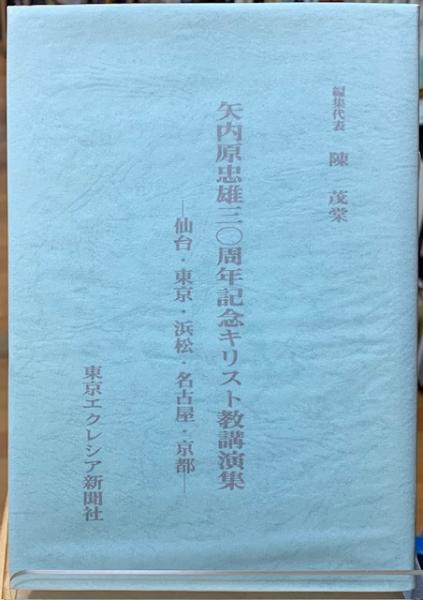 編集代表 陳茂棠
矢内原忠雄三〇周年記念キリスト教講演集
―仙台・東京・浜松・名古屋・京都―
東京エクレシア新聞社